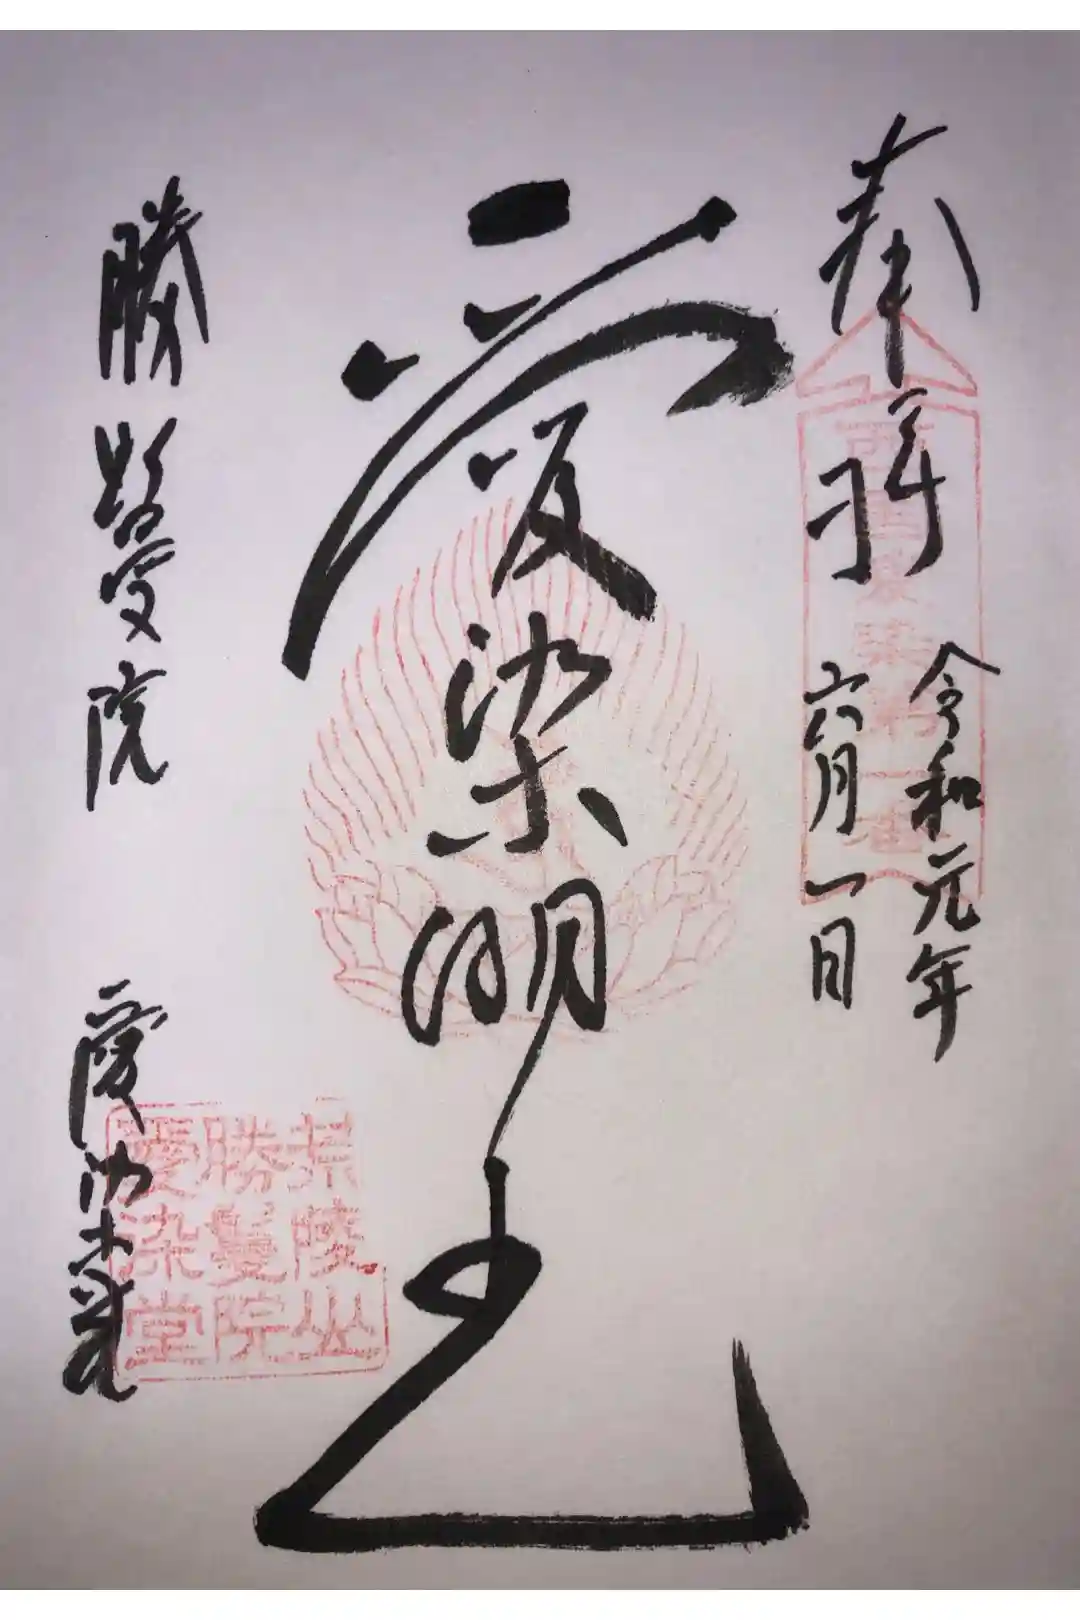 奉拝
令和元年
六月一日
愛染明王
勝鬘院 愛染堂
荒陵山
勝鬘院
愛染堂